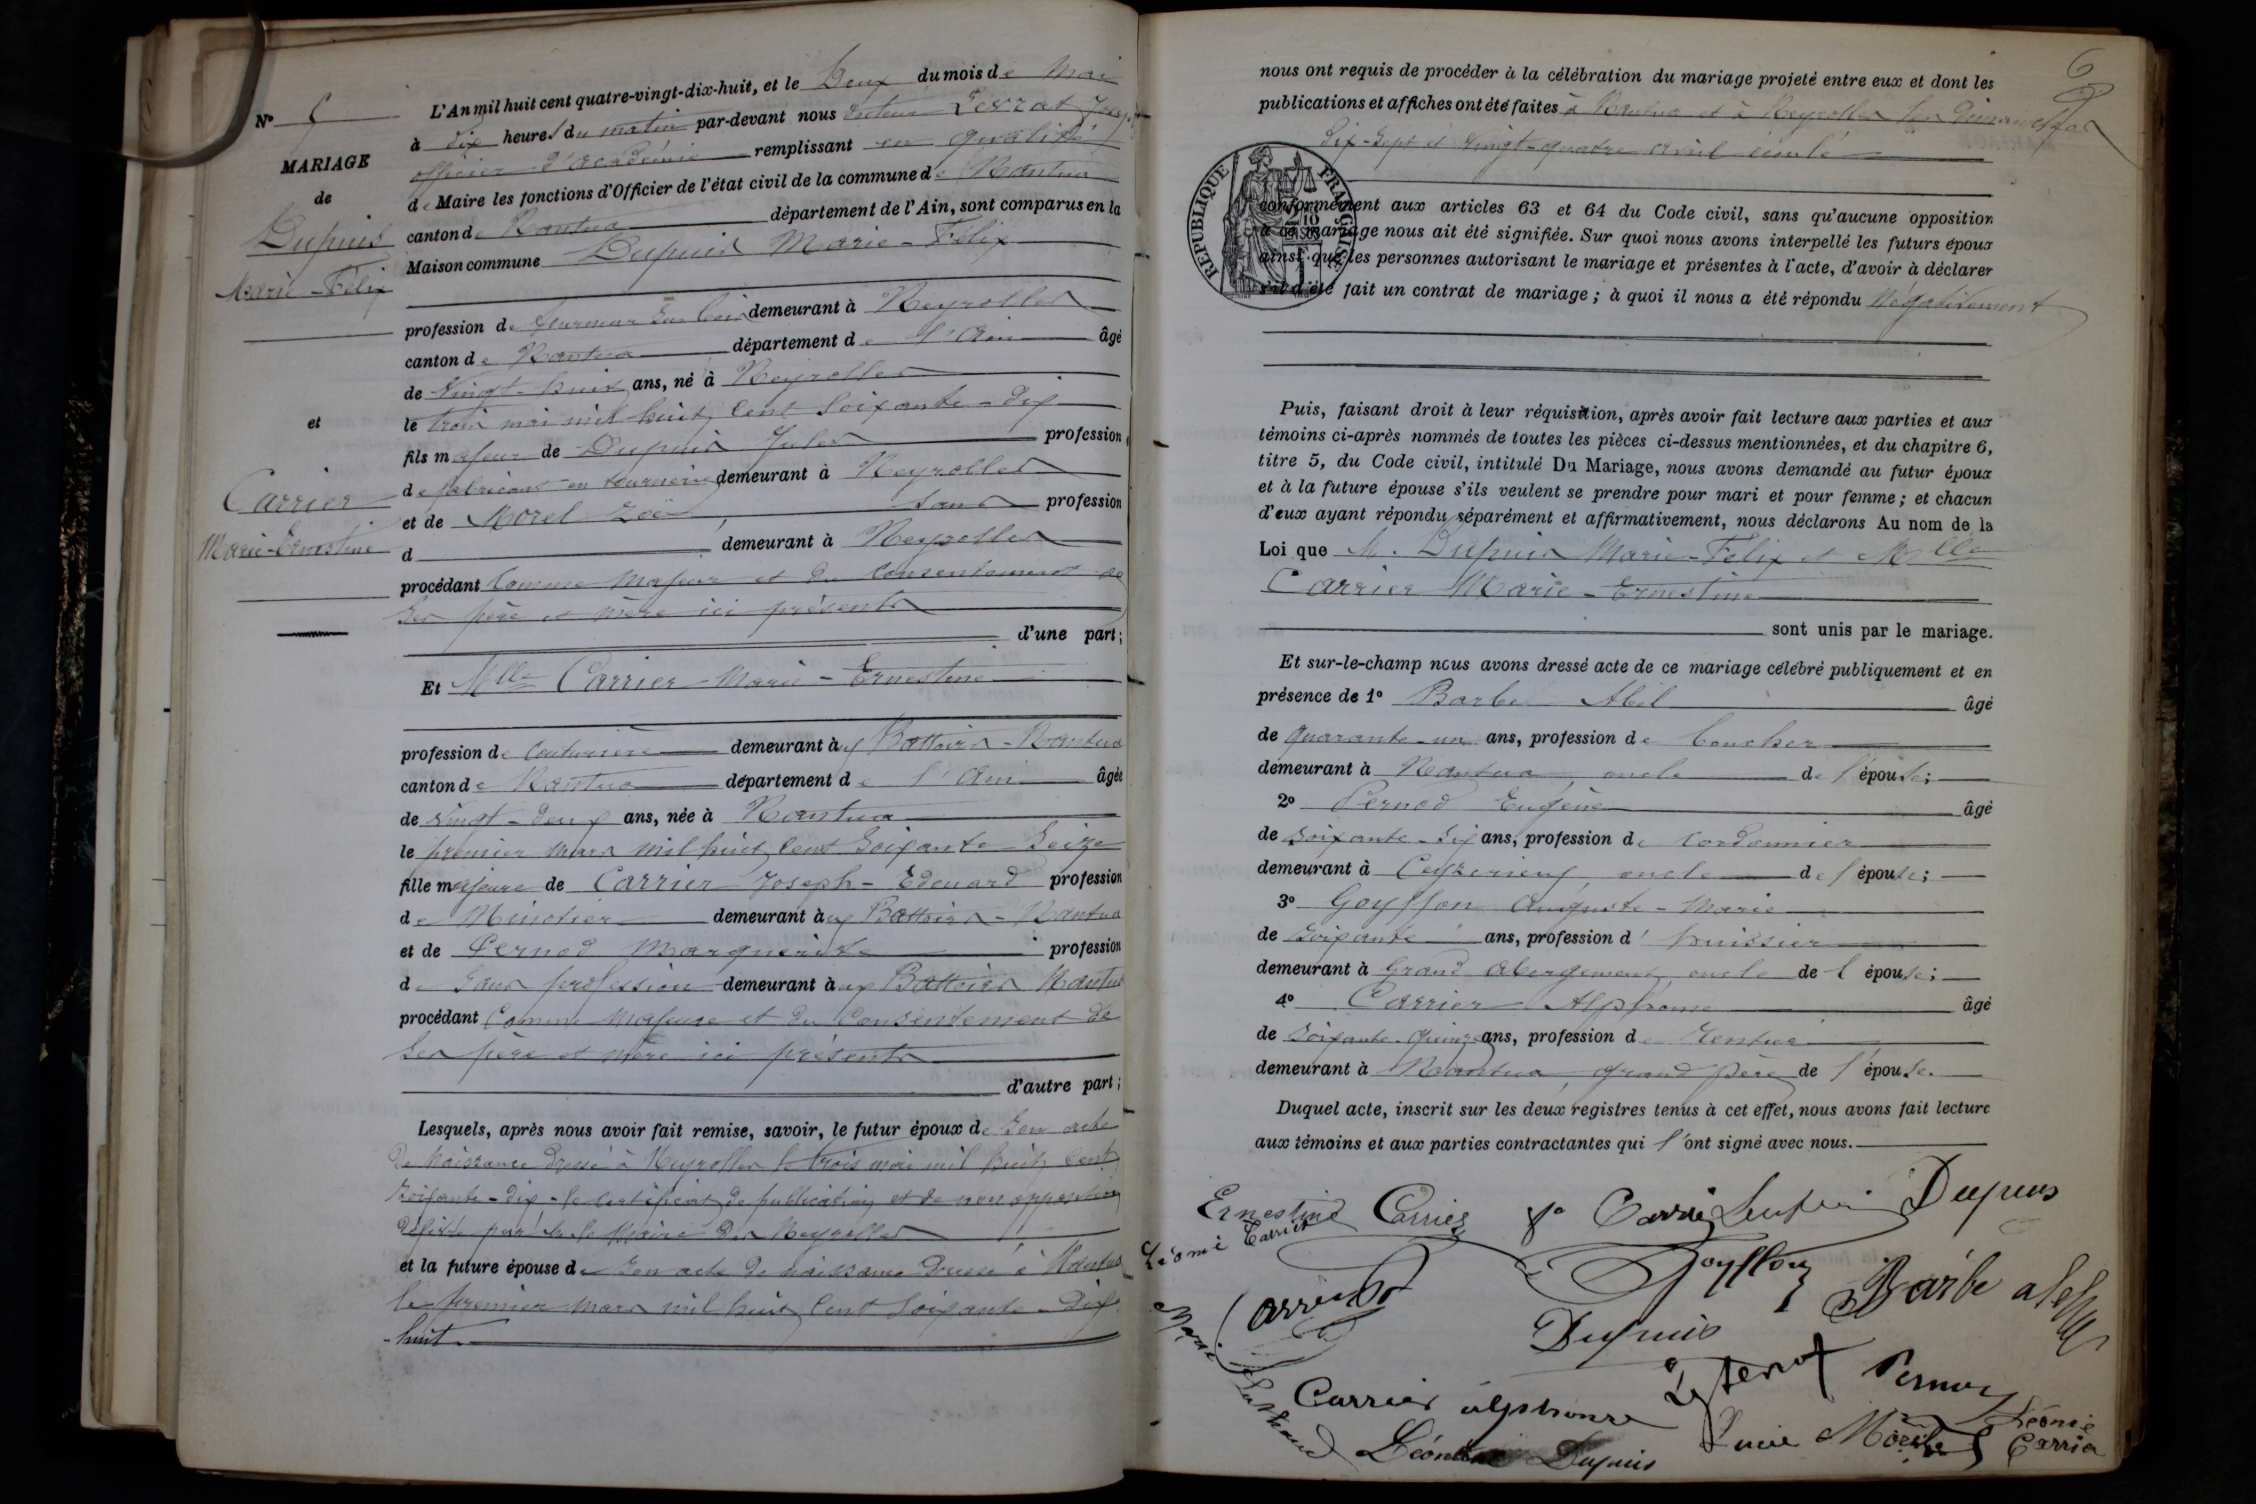 N° 5
MARIAGE
de
Dupuis
Marie-Félix
et
Carrier
Marie-Ernestine
L'An mil huit cent quatre-vingt-dix-huit, et le Deux du mois de Mai
à dix heures du matin par-devant nous docteur Levrat
officier d'académie remplissant en qualité
de Maire les fonctions d'Officier de l'état civil de la commune de Nantua
canton de Nantua département de l'Ain, sont comparus en la
Maison commune Dupuis Marie-Félix
profession de tourneur sur bois demeurant à Neyrolles
canton de Nantua département de l'Ain âgé
de Vingt-huit ans, né à Neyrolles
le trois mai mil huit cent soixante-dix
fils majeur de Dupuis Jules profession
de fabricant en tournerie demeurant à Neyrolles
et de Morel Zoé, sans profession
d demeurant à Neyrolles
procédant comme majeur et du consentement de
ses père et mère ici présents
d'une part;
Et Mlle Carrier Marie-Ernestine
profession de Couturière demeurant aux Battoirs-Nantua
canton de Nantua département de l'Ain âgée
de Vingt-deux ans, née à Nantua
le premier mars mil huit cent soixante-seize
fille majeure de Carrier Joseph-Edouard profession
de Minotier demeurant aux Battoirs-Nantua
et de Pernod Marguerite profession
de Sans profession demeurant aux Battoirs Nantua
procédant comme majeure et du consentement de
ses père et mère ici présents
d'autre part;
Lesquels, après nous avoir fait remise, savoir, le futur époux de son acte
de naissance dressé à Neyrolles le trois mai mil huit cent
soixante-dix - le certificat de publication et de non opposition
délivré par le Maire des Neyrolles
et la future épouse de son acte de naissance dressé à Nantua
le premier mars mil huit cent soixante-dix
-huit.
6
nous ont requis de procéder à la célébration du mariage projeté entre eux et dont les
publications et affiches ont été faites à Nantua et à Neyrolles les Dimanches
dix-sept et vingt-quatre avril écoulé
REPUBLIQUE FRANÇAISE
conformément aux articles 63 et 64 du Code civil, sans qu'aucune opposition
à ce mariage nous ait été signifiée. Sur quoi nous avons interpellé les futurs époux
ainsi que les personnes autorisant le mariage et présentes à l'acte, d'avoir à déclarer
s'il a été fait un contrat de mariage; à quoi il nous a été répondu Négativement
Puis, faisant droit à leur réquisition, après avoir fait lecture aux parties et aux
témoins ci-après nommés de toutes les pièces ci-dessus mentionnées, et du chapitre 6,
titre 5, du Code civil, intitulé Du Mariage, nous avons demandé au futur époux
et à la future épouse s'ils veulent se prendre pour mari et pour femme; et chacun
d'eux ayant répondu séparément et affirmativement, nous déclarons Au nom de la
Loi que M. Dupuis Marie-Félix et Mlle
Carrier Marie-Ernestine
sont unis par le mariage.
Et sur-le-champ nous avons dressé acte de ce mariage célébré publiquement et en
présence de 1° Barbe Abel âgé
de quarante-un ans, profession de boucher
demeurant à Nantua, oncle de l'épouse;
2° Pernod Eugène âgé
de soixante-six ans, profession de Cordonnier
demeurant à Ceyzerieux, oncle de l'épouse;
3° Goyffon Auguste-Marie
de soixante ans, profession d'huissier
demeurant à Grand Abergement, oncle de l'épouse;
4° Carrier Alphonse âgé
de soixante-quinze ans, profession de Rentier
demeurant à Nantua, grand père de l'épouse.
Duquel acte, inscrit sur les deux registres tenus à cet effet, nous avons fait lecture
aux témoins et aux parties contractantes qui l'ont signé avec nous.
Ernestine Carrier Dupuis
Carrier
Goyffon Barbe
Dupuis
Carrier alphonse Pernod
Dupuis Lucie Léonie
Carrier